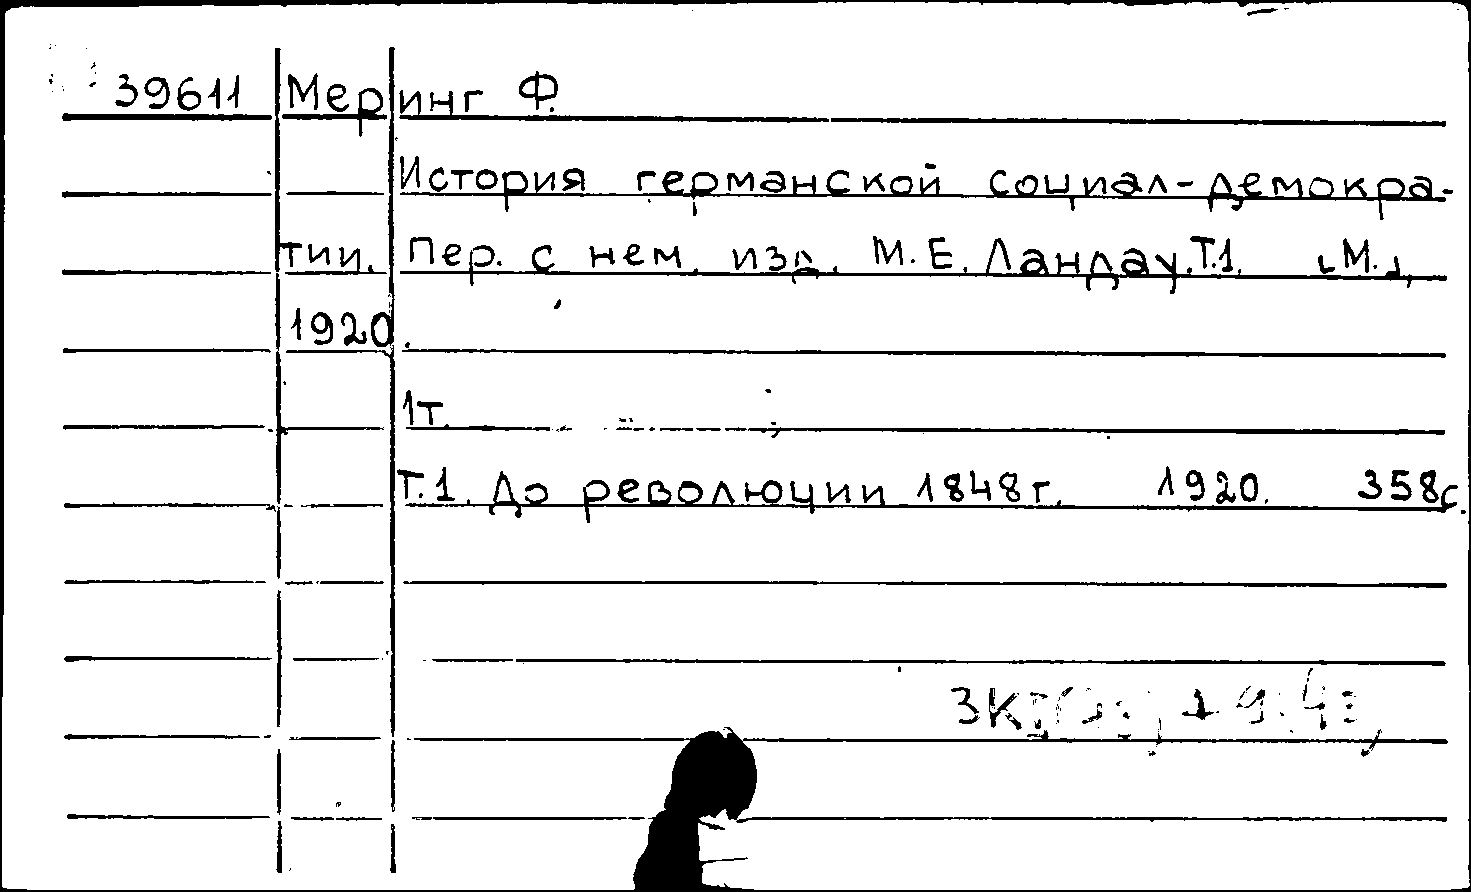 39611 Меринг Ф.
История германской социал-демокра-
тии. Пер. с нем. изд. М.Е. Ландау. Т.1. [М.],
1920.
1т.
Т.1. До революции 1848г. 1920. 358с.